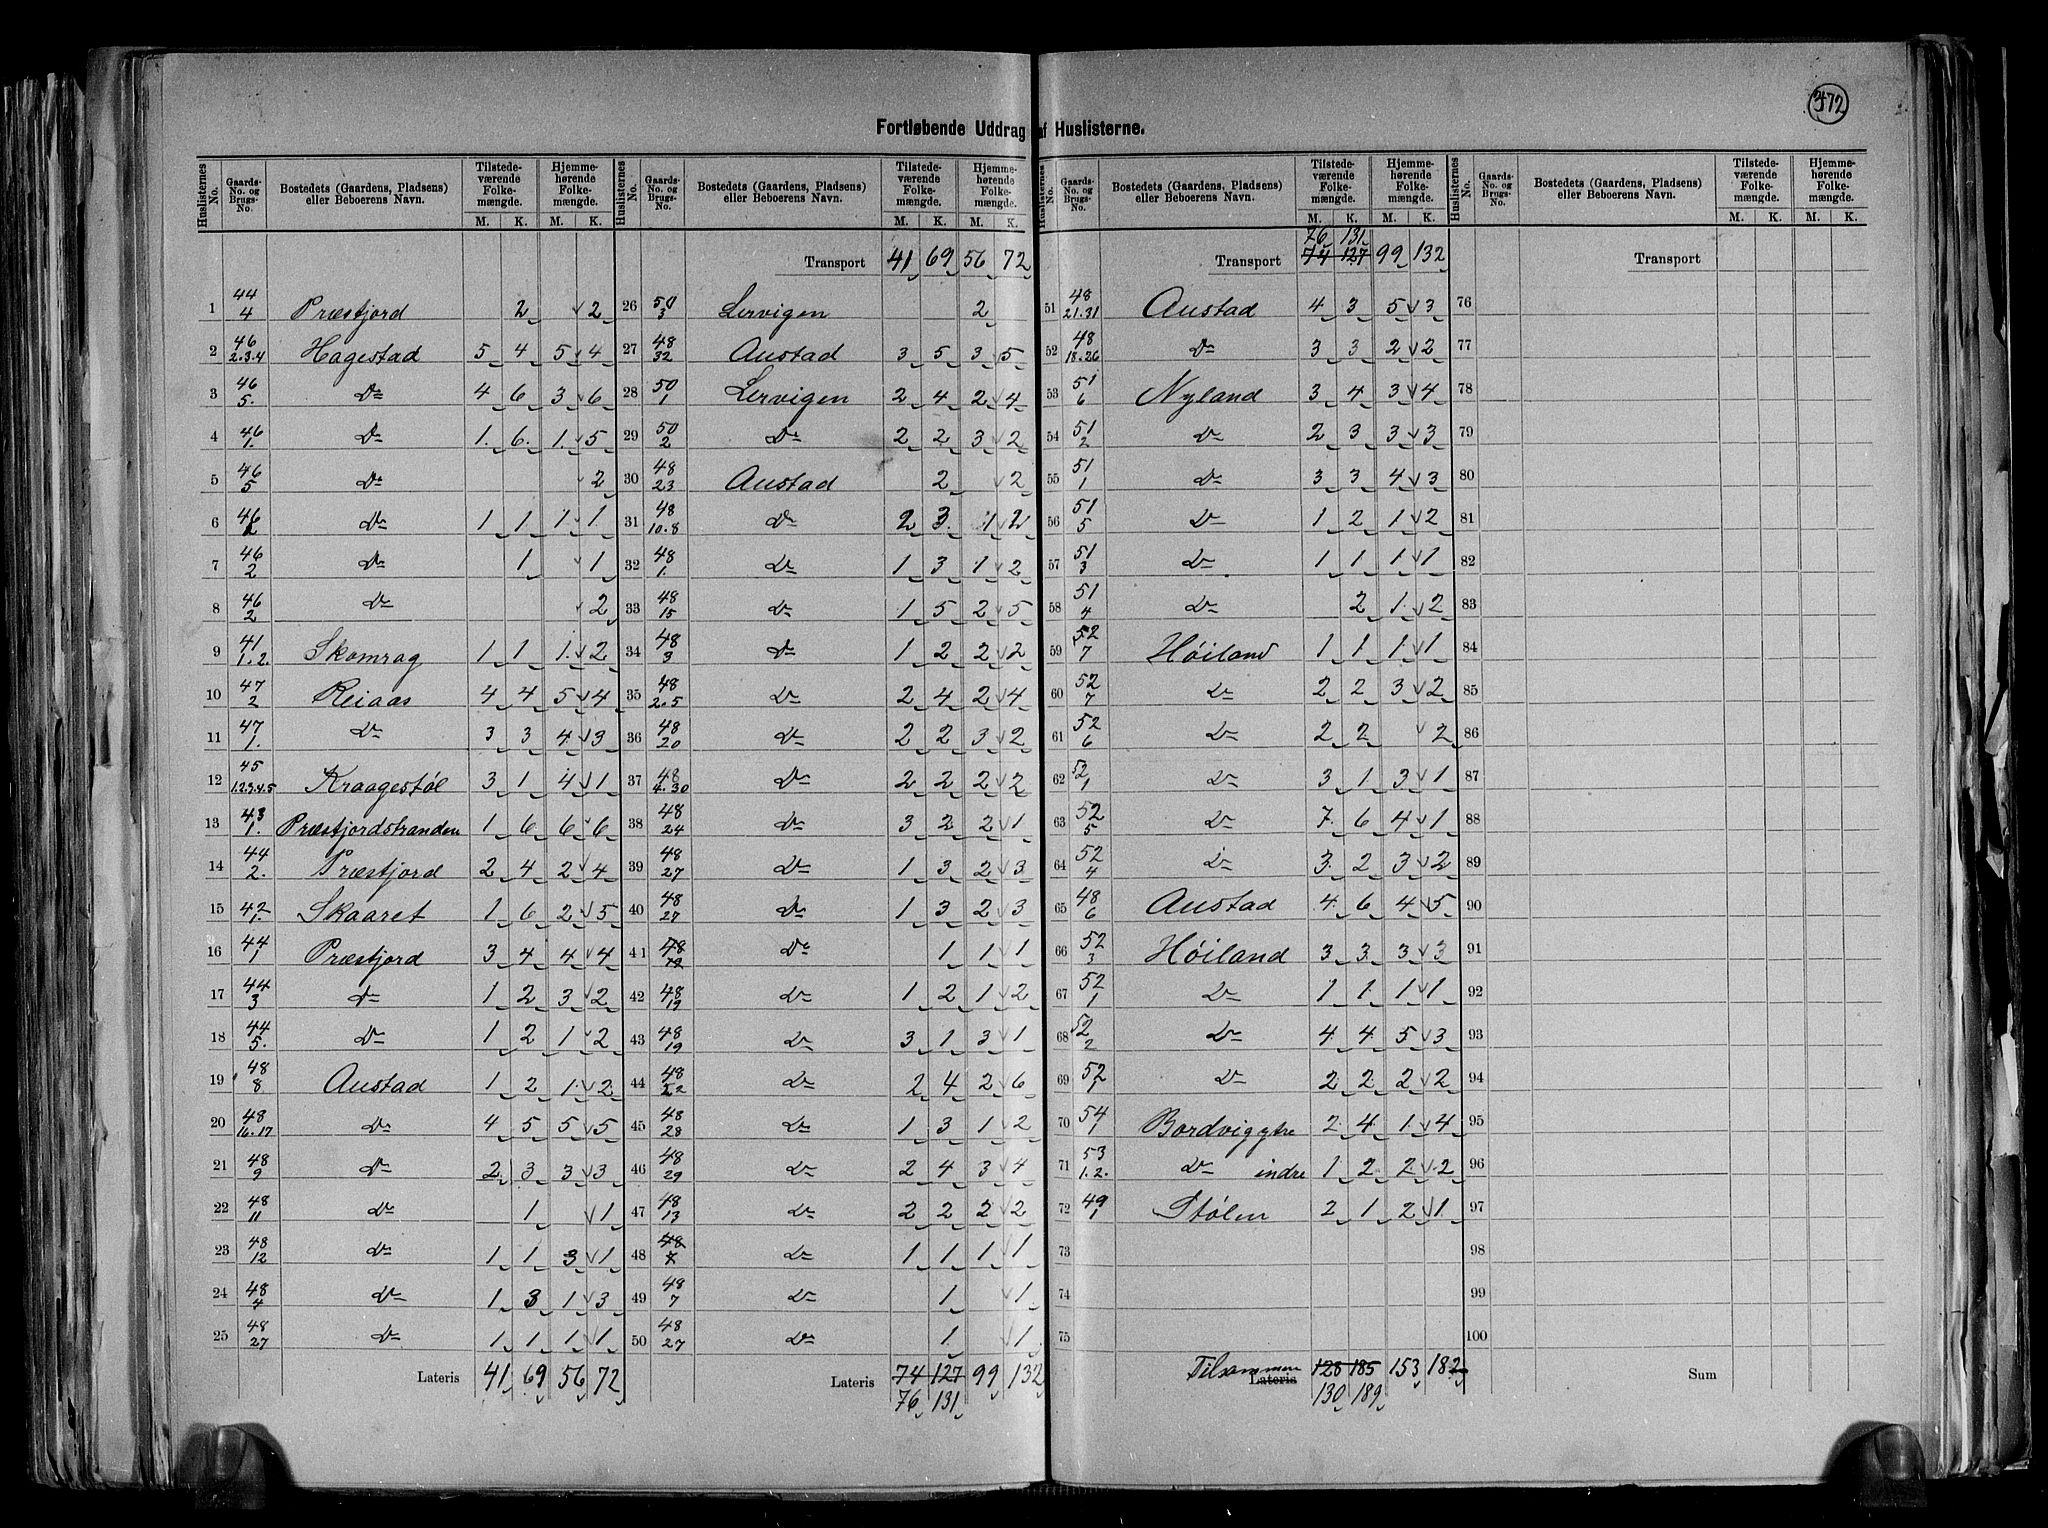 372
Fortløbende Uddrag af Huslisterne.
Huslisternes No. | Gaards-No. og Brugs-No. | Bostedets (Gaardens, Pladsens) eller Beboerens Navn. | Tilstedeværende Folkemængde. M. K. | Hjemmehørende Folkemængde. M. K.
1 44/4 Præstfjord 2 2
2 46/2.3.4 Hagestad 5 4 5 4
3 46/5. Do 4 6 3 6
4 46/1. Do 1 6 1 5
5 46/5 Do 2
6 46/2 Do 1 1 1 1
7 46/2 Do 1 1
8 46/2 Do 2
9 41/1.2. Skomrag 1 1 1 2
10 47/2 Reiaas 4 4 5 4
11 47/1. Do 3 3 4 3
12 45/1.2.3.4.5 Kraagestøl 3 1 4 1
13 43/1. Præstfjordstranden 1 6 6 6
14 44/2. Præstfjord 2 4 2 4
15 42/1. Skaaret 1 6 2 5
16 44/1 Præstfjord 3 4 4 4
17 44/3 Do 1 2 3 2
18 44/5. Do 1 2 1 2
19 48/8 Austad 1 2 1 2
20 48/16.17 Do 4 5 5 5
21 48/9 Do 2 3 3 3
22 48/11 Do 1 1
23 48/12 Do 1 1 3 1
24 48/4 Do 1 3 1 3
25 48/27 Do 1 1 1 1
Lateris 41 69 56 72
Huslisternes No. | Gaards-No. og Brugs-No. | Bostedets (Gaardens, Pladsens) eller Beboerens Navn. | Tilstedeværende Folkemængde. M. K. | Hjemmehørende Folkemængde. M. K.
Transport 41 69 56 72
26 50/3 Lervigen 2
27 48/32 Austad 3 5 3 5
28 50/1 Lervigen 2 4 2 4
29 50/2 Do 2 2 3 2
30 48/23 Austad 2 2
31 48/10.8 Do 2 3 1 2
32 48/1. Do 1 3 1 2
33 48/15 Do 1 5 2 5
34 48/3 Do 1 2 2 2
35 48/2.5 Do 2 4 2 4
36 48/20 Do 2 2 3 2
37 48/4.30 Do 2 2 2 2
38 48/24 Do 3 2 2 1
39 48/27 Do 1 3 2 3
40 48/27 Do 1 3 2 3
41 48/19 Do 1 1 1
42 48/19 Do 1 2 1 2
43 48/19 Do 3 1 3 1
44 48/22 Do 2 4 2 6
45 48/28 Do 1 3 1 2
46 48/29 Do 2 4 3 4
47 48/13 Do 2 2 2 2
48 48/7 Do 1 1 1 1
49 48/7 Do 1 1
50 48/27 Do 1 1
Lateris 74 127 99 132
76 131
Huslisternes No. | Gaards-No. og Brugs-No. | Bostedets (Gaardens, Pladsens) eller Beboerens Navn. | Tilstedeværende Folkemængde. M. K. | Hjemmehørende Folkemængde. M. K.
76 131
Transport 74 127 99 132
51 48/21.31 Austad 4 3 5 3
52 48/18.26 Do 3 3 2 2
53 51/6 Nyland 3 4 3 4
54 51/2 Do 2 3 3 3
55 51/1 Do 3 3 4 3
56 51/5 Do 1 2 1 2
57 51/3 Do 1 1 1 1
58 51/4 Do 2 1 2
59 52/7 Høiland 1 1 1 1
60 52/7 Do 2 2 3 2
61 52/6 Do 2 2 2
62 52/1 Do 3 1 3 1
63 52/5 Do 7 6 4 1
64 52/4 Do 3 2 3 2
65 48/6 Austad 4 6 4 5
66 52/3 Høiland 3 3 3 3
67 52/1 Do 1 1 1 1
68 52/2 Do 4 4 5 3
69 52/1 Do 2 2 2 2
70 54/1 Bordvig ytre 2 4 1 4
71 53/1.2. Do indre 1 2 2 2
72 49/1 Stølen 2 1 2 1
73
74
75
Tilsammen
Lateris 128 185 153 182
130 189
Huslisternes No. | Gaards-No. og Brugs-No. | Bostedets (Gaardens, Pladsens) eller Beboerens Navn. | Tilstedeværende Folkemængde. M. K. | Hjemmehørende Folkemængde. M. K.
Transport
76
77
78
79
80
81
82
83
84
85
86
87
88
89
90
91
92
93
94
95
96
97
98
99
100
Sum